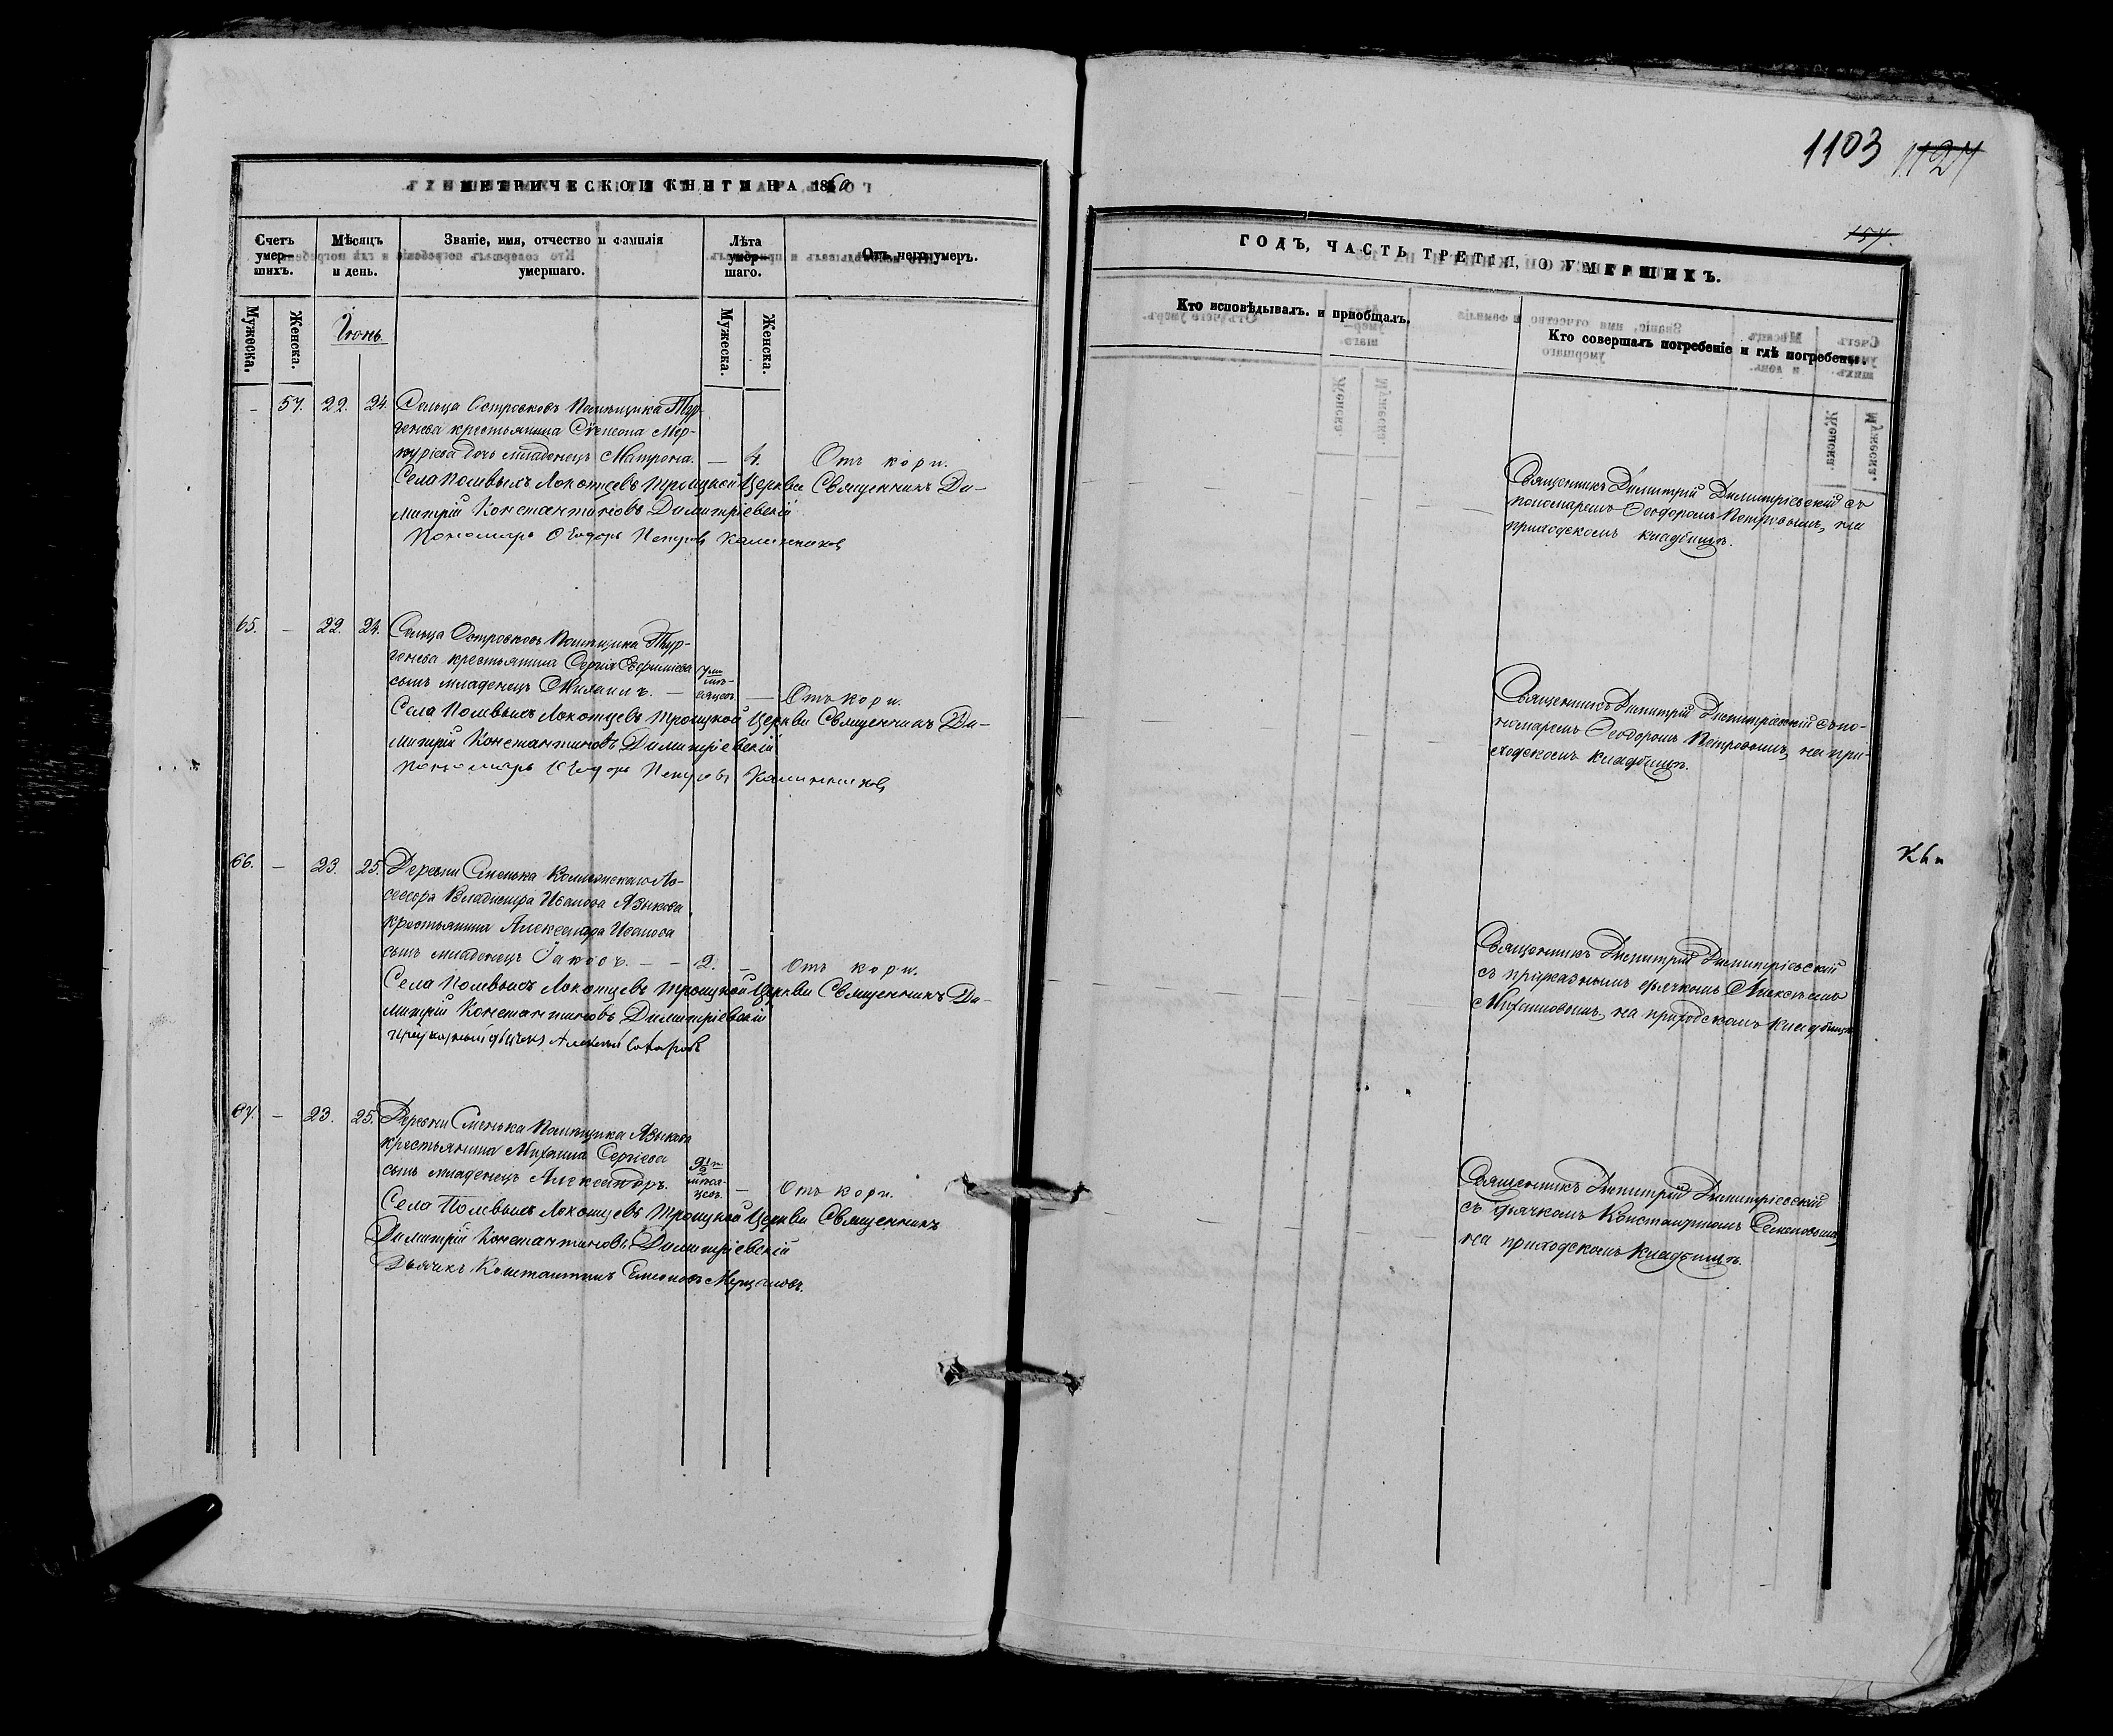 МЕТРИЧЕСКОЙ КНИГИ НА 1860
Счетъ умер-шихъ.
Мѣсяцъ и день.
Званіе, имя, отчество и фамилія умершаго.
Лѣта умер-шаго.
Отъ чего умеръ.
Мужеска.
Женска.
Іюнь
Мужеска.
Женска.
- 57. 22. 24. Сельца Островковъ Помѣщика Тур-
генева крестьянина Сѵмеона Мер-
куріева дочь младенецъ Матрона. — 4. Отъ кори.
Села Полевыхъ Локотцевъ Троицкой Церкви Священникъ Ди-
митрій Константиновъ Димитріевскій
Пономарь Ѳеодоръ Петровъ Калинниковъ
65. - 22. 24. Сельца Островковъ Помѣщика Тур-
генева крестьянина Сергія Евфиміева
сынъ младенецъ Михаилъ. — 7ми мѣ-сяцевъ — Отъ кори.
Села Полевыхъ Локотцевъ Троицкой Церкви Священникъ Ди-
митрій Константиновъ Димитріевскій
Пономарь Ѳеодоръ Петровъ Калинниковъ
66. - 23. 25. Деревни Коллежскаго Ас-
сессора Владиміра Иванова Языкова
крестьянина Александра Иванова
сынъ младенецъ Іаковъ. — 2. — Отъ кори.
Села Полевыхъ Локотцевъ Троицкой Церкви Священникъ Ди-
митрій Константиновъ Димитріевскій
дьячекъ Алексѣй
67. - 23. 25. Деревни Помѣщика Языкова
крестьянина Михаила Сергіева
сынъ младенецъ Александръ. 9½ мѣся-цевъ. — Отъ кори.
Села Полевыхъ Локотцевъ Троицкой Церкви Священникъ
Димитрій Константиновъ Димитріевскій
Дьячекъ Константинъ Семеновъ
1103 1124
154.
ГОДЪ, ЧАСТЬ ТРЕТІЯ, О УМЕРШИХЪ.
Кто исповѣдывалъ. и пріобщалъ.
Кто совершалъ погребеніе и гдѣ погребены.
Священникъ Димитрій Димитріевскій съ
пономаремъ Ѳеодоромъ Петровымъ, на
приходскомъ кладбищѣ.
Священникъ Димитрій Димитріевскій съ по-
номаремъ Ѳеодоромъ Петровымъ, на при-
ходскомъ кладбищѣ.
Священникъ Димитрій Димитріевскій
съ дьячкомъ Алексѣемъ
Михайловымъ, на приходскомъ кладбищѣ
Священникъ Димитрій Димитріевскій
съ дьячкомъ Константиномъ Семеновымъ,
на приходскомъ кладбищѣ.